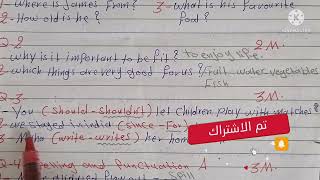 1- Where is James from? 3- What is his favourite
2- How old is he? food?
Q-2 2M.
1- why is it important to be fit? to enjoy life.
2- which things are very good for us? fruit, water, vegetables
fish
Q-3 3M.
1- You (should - shouldn't) let children play with matches?
stayed in india (since - For)
(write - writes) her hom
تم الاشتراك
Q-4 and punctuation A 3M.